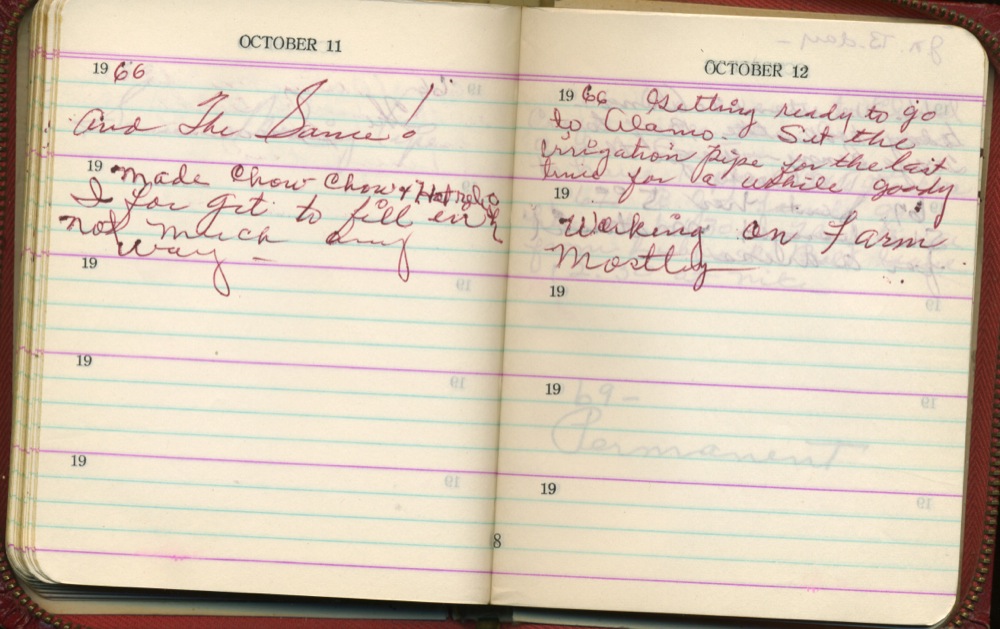 OCTOBER 11
1966
And The Same!
19
Made Chow Chow & Hot relis
I for got to fill in
not much any
way -
19
19
19
8
OCTOBER 12
1966 Getting ready to go
to Alamo. Set the
irrigation pipe for the last
time for a while goody
19
Working on Farm
Mostly
19
19 69-
Permanent
19